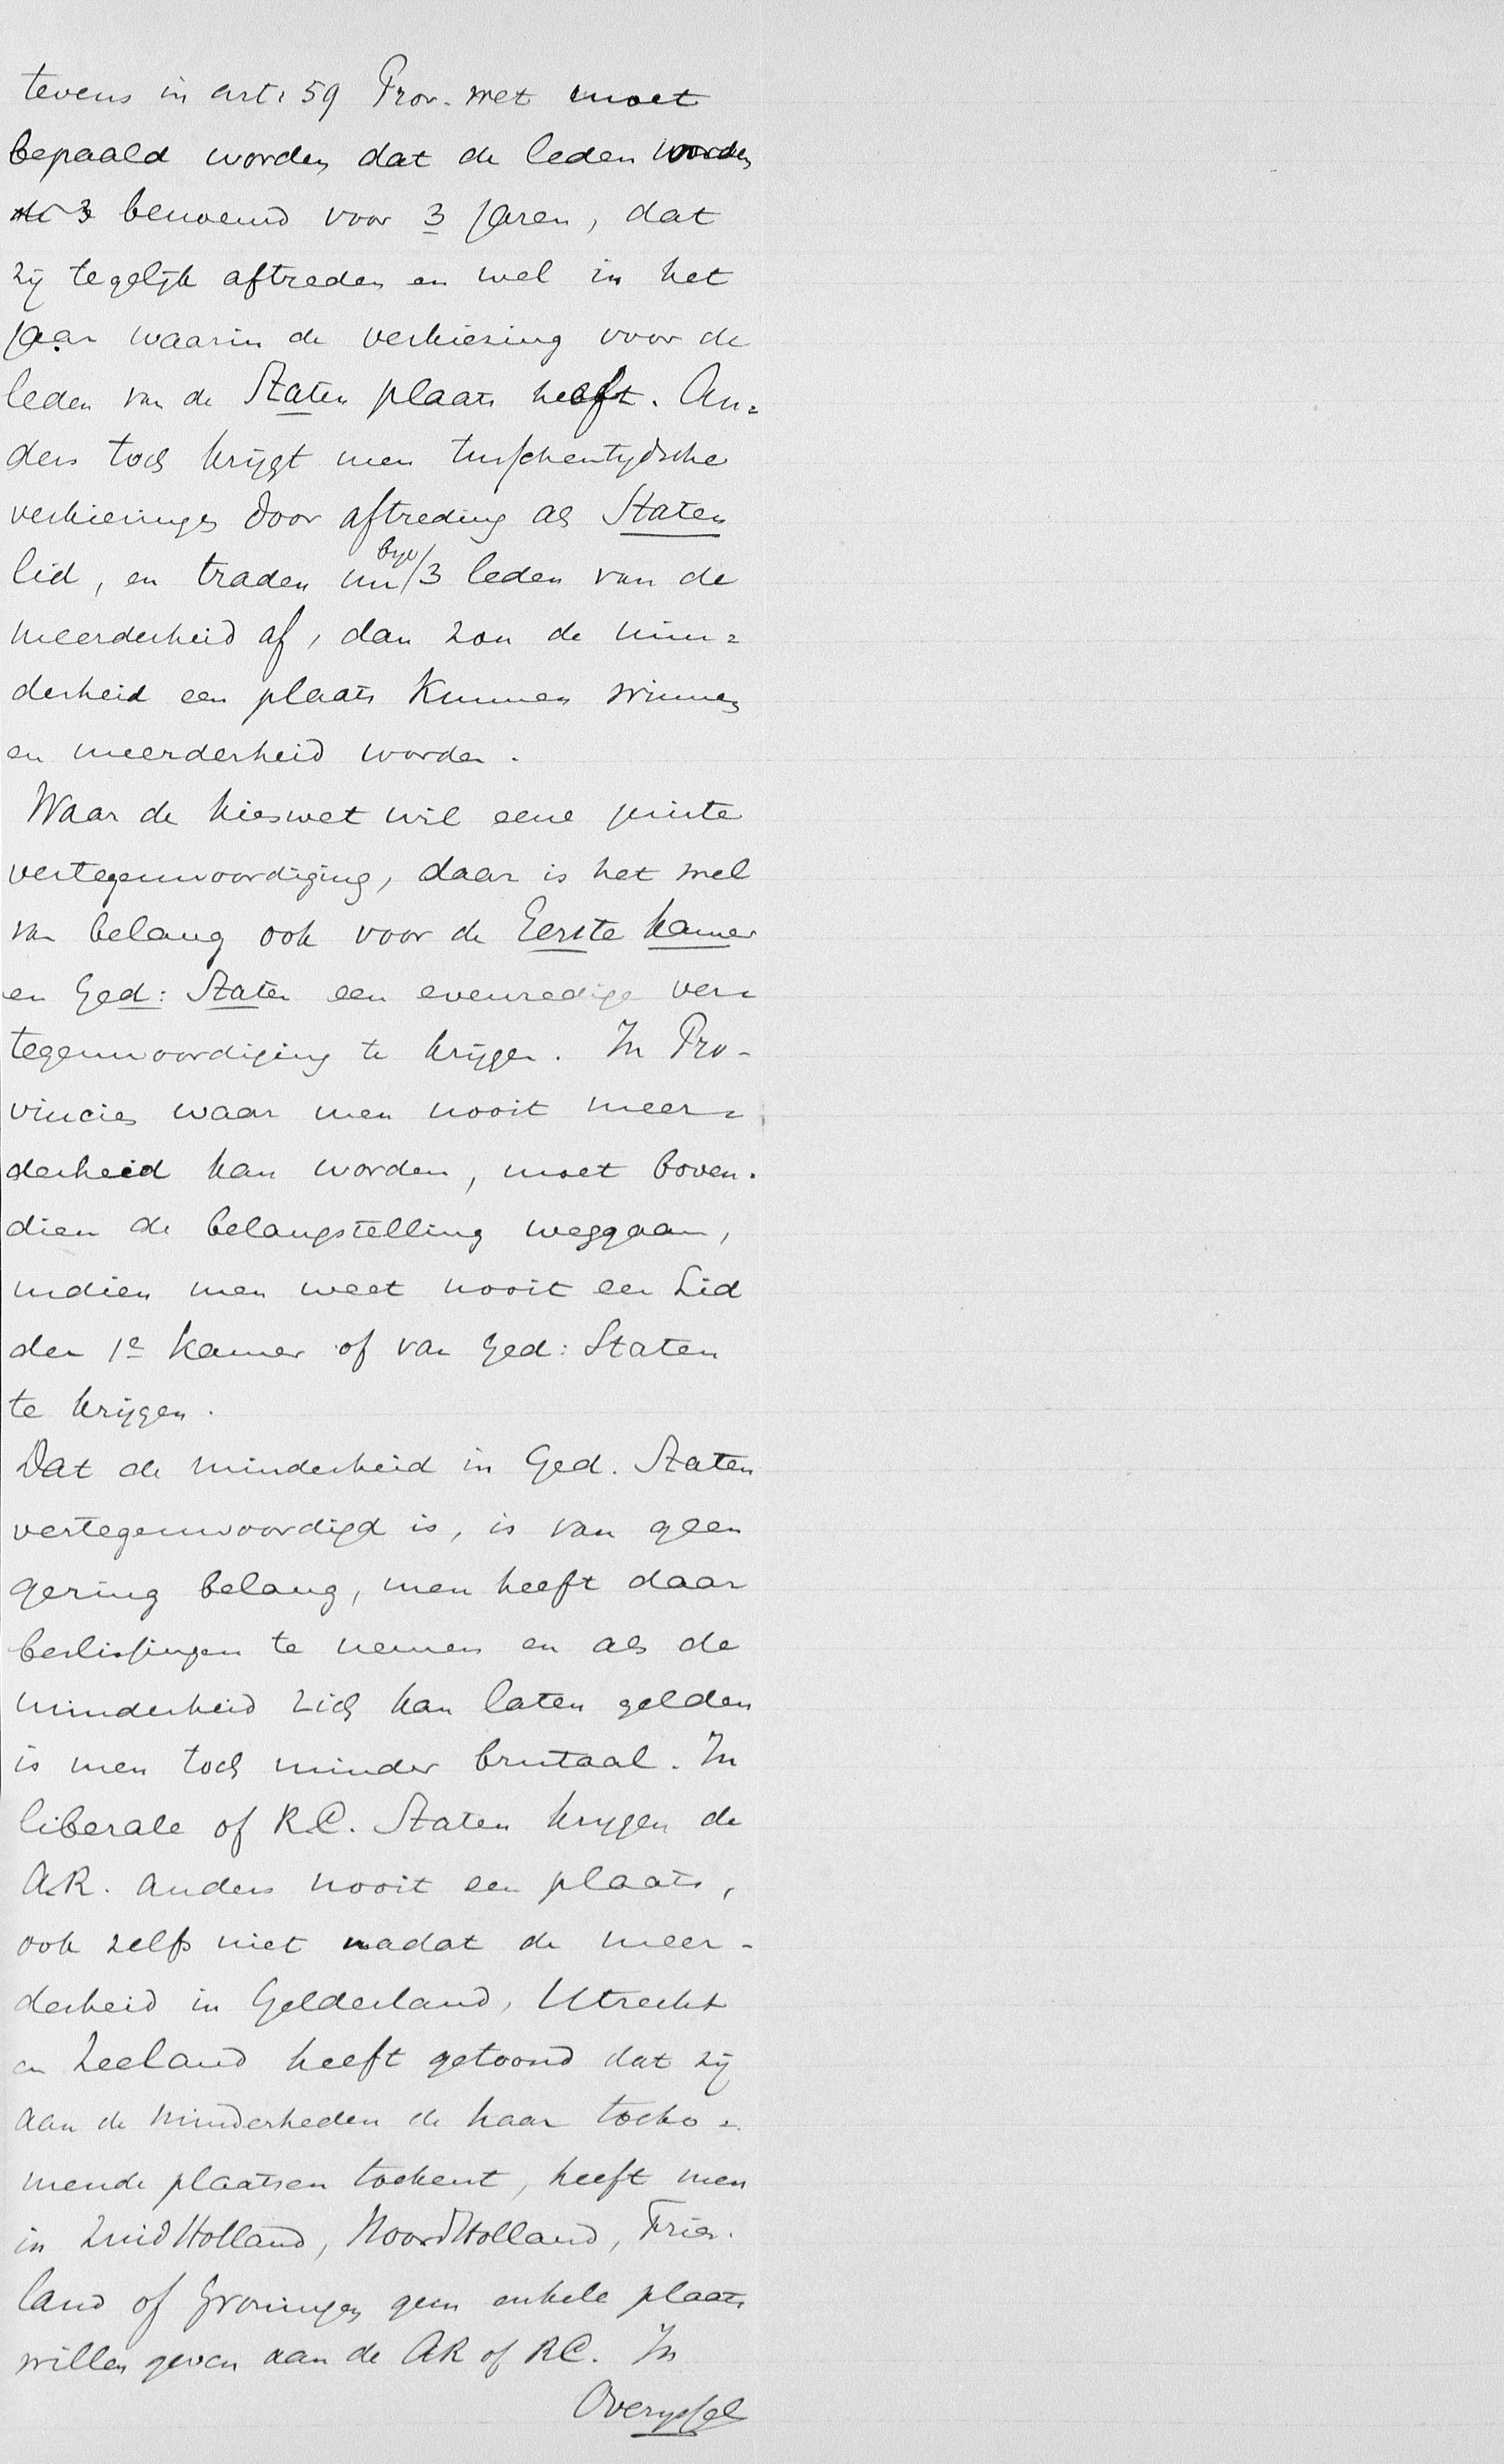 tevens in art: 59 Prov. wet moet
bepaald worden dat de leden worden
benoemd voor 3 jaren, dat
zij tegelijk aftreden en wel in het
jaar waarin de verkiezing voor de
leden van de Staten plaats heeft. An=
ders toch krijgt men tusschentijdsche
verkiezingen door aftreding als Staten
lid, en traden nu bijv 3 leden van de
meerderheid af, dan zou de min=
derheid een plaats kunnen winnen
en meerderheid worden.
Waar de kieswet wil eene juiste
vertegenwoordiging, daar is het wel
van belang ook voor de Eerste Kamer
en Ged: Staten een evenredige ver=
tegenwoordiging te krijgen. In Pro-
vincies waar men nooit meer=
derheid kan worden, moet boven-
dien de belangstelling weggaan,
indien men weet nooit een Lid
der 1e Kamer of van Ged: Staten
te krijgen.
Dat de minderheid in Ged. Staten
vertegenwoordigd is, is van geen
gering belang, men heeft daar
beslissingen te nemen en als de
minderheid zich kan laten gelden
is men toch minder brutaal. In
liberale of R.C. Staten krijgen de
A.R. anders nooit een plaats,
ook zelfs niet nadat de meer-
derheid in Gelderland, Utrecht
en Zeeland heeft getoond dat zij
aan de minderheden de haar toeko=
mende plaatsen toekent, heeft men
in Zuid Holland, Noord Holland, Fries-
land of Groningen geen enkele plaats
willen geven aan de AR of RC. In
Overijssel